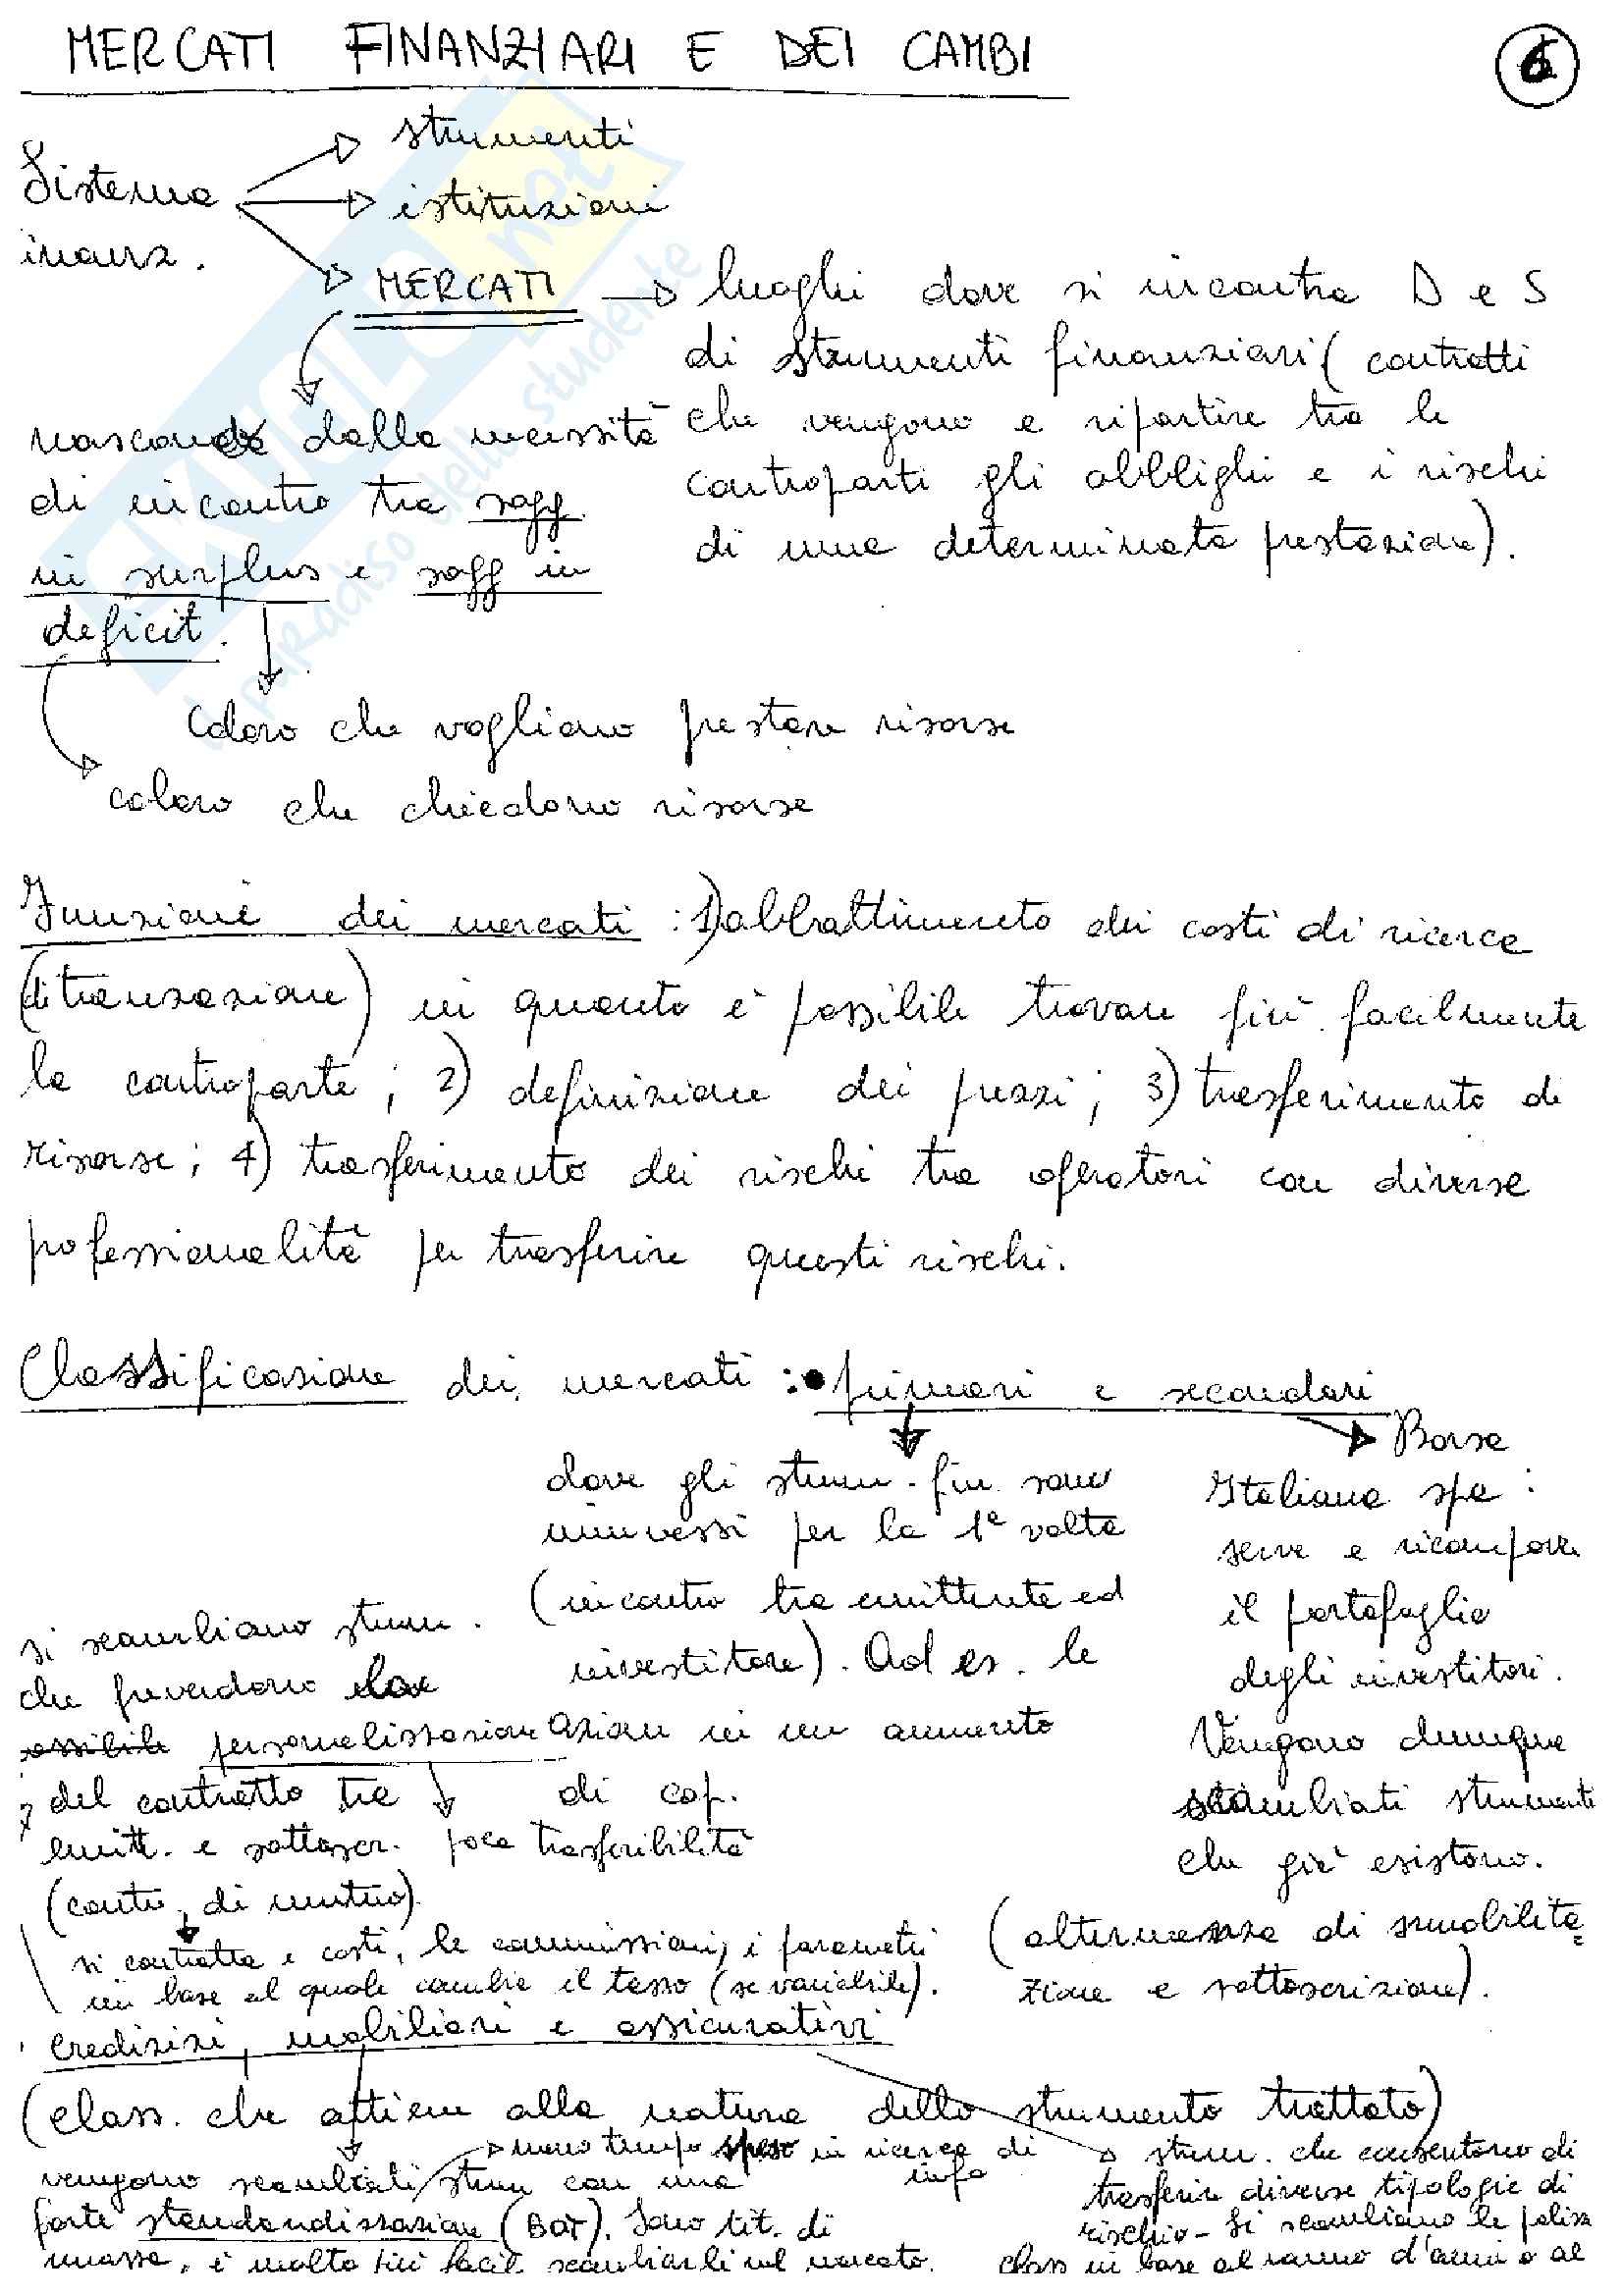 MERCATI FINANZIARI E DEI CAMBI
6
Sistema
inanz.
strumenti
istituzioni
MERCATI
luoghi dove si incontra D e S
di strumenti finanziari ( contratti
che vengono a ripartire tra le
controparti gli obblighi e i rischi
di una determinata prestazione).
nascono dalla necessità
di incontro tra sogg.
in surplus e sogg in
deficit.
Coloro che vogliono prestare risorse
coloro che chiedono risorse
Funzioni dei mercati : 1) abbattimento dei costi di ricerca
(di transazione) in quanto è possibile trovare più facilmente
la controparte ; 2) definizione dei prezzi ; 3) trasferimento di
risorse ; 4) trasferimento dei rischi tra operatori con diverse
pofessionalità per trasferire questi rischi.
Classificazione dei mercati : • primari e secondari
dove gli strum. fin. sono
immessi per la 1ª volta
(incontro tra emittente ed
investitore). Ad es. le
azioni in un aumento
di cap.
Borsa
Italiana spa :
serve a ricomporre
il portafoglio
degli investitori.
Vengono dunque
scambiati strumenti
che già esistono.
(alternanza di smobilita=
zione e sottoscrizione).
si scambiano strum.
che prevedono
personalizzazione
del contratto tra
emitt. e sottoscr.
poca trasferibilità
(contr. di mutuo)
si contratta i costi, le commissioni, i parametri
in base al quale cambia il tasso (se variabile).
creditizi, mobiliari e assicurativi
(class. che attiene alla natura dello strumento trattato)
meno tempo speso in ricerca di
info
vengono scambiati strum con una
forte standardizzazione (BOT). Sono tit. di
massa, è molto più facil scambiarli nel mercato.
strum. che consentono di
trasferire diverse tipologie di
rischio - Si scambiano le polizze
class in base al ramo d'anni o al